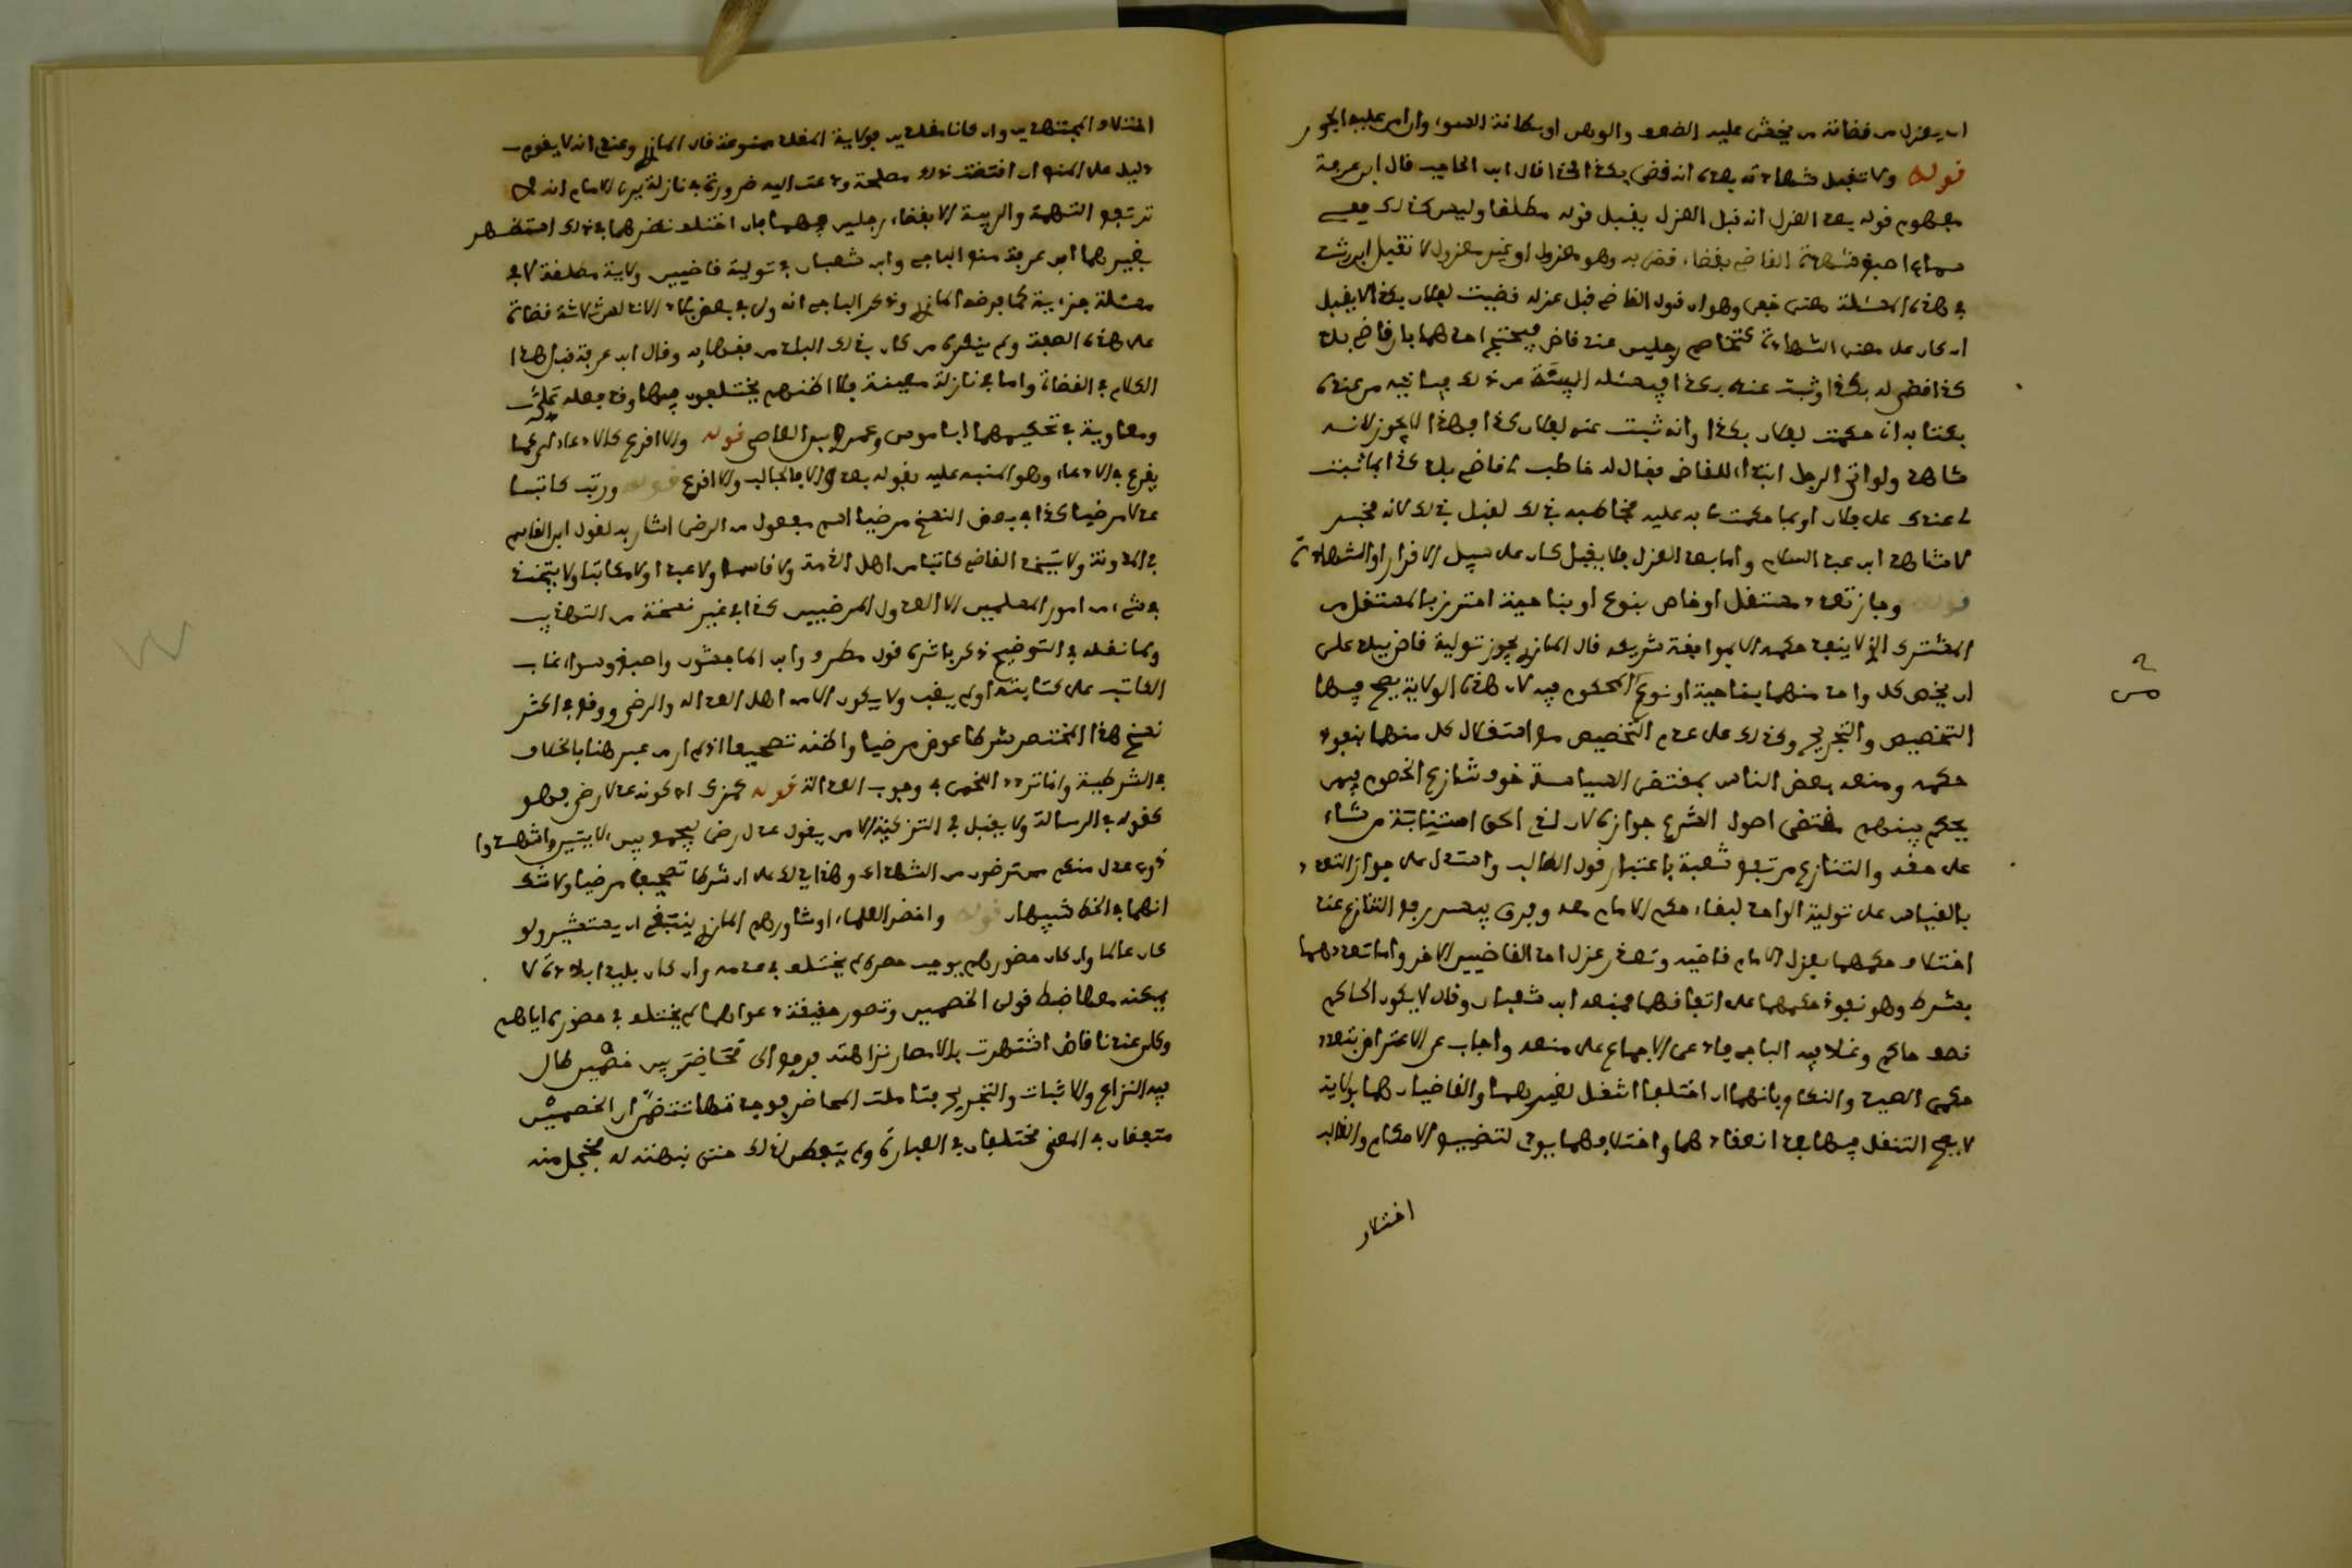 ان يعزل من قضاته من يخشى عليه الضعف والوهن او بطانة السوء وان امن عليه الجور
قوله ولا تقبل شهادته بعده انه قضى بكذا كذا قال ابن الحاجب قال ابن عرفة
مفهوم قوله بعد العزل انه قبل العزل يقبل قوله مطلقا وليس كذلك ففي
سماع اصبغ شهادة القاضي بقضاء قضى به وهو معزول او غير معزول لا تقبل ابن رشد
في هذه المسئلة معنى خفي وهو ان قول القاضي قبل عزله قضيت لفلان بكذا لا يقبل
ان كان على معنى الشهادة كتخاصم رجلين عند قاض فيحتج احدهما بان قاضي بلد
كذا قضى له بكذا وثبت عنده بكذا فيسئله البينة من ذلك فياتيه من عنده
بكتابه اني حكمت لفلان بكذا وانه ثبت عندي لفلان كذا فهذا لا يجوز لانه
شاهد ولو اتى الرجل ابتداء للقاضي فقال له خاطب لي قاضي بلد كذا بما ثبت
لي عندك على فلان او بما حكمت لي به عليه فخاطبه بذلك لقبل ذلك لانه مخبر
لا شاهد ابن عبد السلام واما بعد العزل فلا يقبل كان على سبيل الاقرار او الشهادة
قوله وجاز تعدد مستقل او خاص بنوع او بناحية احترز بالمستقل من
المشترك الذي لا ينفذ حكمه الا بموافقة شريكه قال المازري يجوز تولية قاضيين ببلد على
ان يخص كل واحد منهما بناحية او نوع المحكوم فيه لان هذه الولاية يصح فيها
التخصيص والتجريح وكذلك على عدم التخصيص مع استقلال كل منهما بنفوذ
حكمه ومنعه بعض الناس بمقتضى السياسة خوف تنازع الخصوم فيمن
يحكم بينهم مقتضى اصول الشرع جوازه لان لذي الحق استنابة من شاء
على حقه والتنازع مرتفع شعبه باعتبار قول الطالب واستدل على جواز التعدد
بالقياس على تولية الواحد لبقاء حكم الامام معه وفرق بيسر رفع التنازع عند
اختلاف حكمهما بعزل الامام قاضيه وتعذر عزل احد القاضيين الاخر واما تعددهما
بشرط وهو نفوذ حكمهما على اتفاقهما فمنعه ابن شعبان وقال لا يكون الحاكم
نصف حاكم وغلا فيه الباجي فادعى الاجماع على منعه واجاب عن الاعتراض بتعدد
حكمي الصيد والنكاح بانهما ان اختلفا انتقل لغيرهما والقاضيان هما بولاية
لا يصح التنقل فيها بعد انعقادهما واختلافهما يودي لتضييع الاحكام والغالب
اختلاف
اختلاف المجتهدين وان كانا مقلدين فولاية المقلد ممنوعة قال المازري وعندي انه لا يقوم
دليل على المنع ان اقتضت ذلك مصلحة ودعت اليه ضرورة في نازلة يرى الامام انه لا
ترتفع التهمة والريبة الا بقضاء رجلين فيها فان اختلف نظرهما في ذلك استظهر
بغيرهما ابن عرفة منع الباجي وابن شعبان في تولية قاضيين ولاية مطلقة لا في
مسئلة جزئية كما فرضه المازري وذكر الباجي انه ولي في بعض بلاد الاندلس ثلاثة قضاة
على هذه الصفة ولم ينكره من كان بذلك البلد من فقهائه وقال ابن عرفة قبل هذا
الكلام في القضاة واما في نازلة معينة فلا اظنهم يختلفون فيها وقد فعله علي
ومعاوية في تحكيمهما ابا موسى وعمرو بن العاصي قوله والا اقرع كالادعاء اي كما
يقرع في الادعاء وهو المنبه عليه بقوله بعد والا فالجالب والا اقرع قوله ورتب كاتبا
عدلا مرضيا كذا في بعض النسخ مرضيا اسم مفعول من الرضى اشار به لقول ابن القاسم
في المدونة ولا يتخذ القاضي كاتبا من اهل الذمة ولا قاسما ولا عبدا ولا مكاتبا ولا يتخذ
في شيء من امور المسلمين الا العدول المرضيين كذا في غير نسخة من التهذيب
ولما نقله في التوضيح ذكر باثره قول مطرف وابن الماجشون واصبغ وسواء غاب
الكاتب على كتابته او لم يغب ولا يكون الا من اهل العدالة والرضى ووقع في اكثر
نسخ هذا المختصر شرطا عوض مرضيا واظنه تصحيفا اذ لم ار من عبر هنا بالخلاف
في الشرطية وانما تردد اللخمي في وجوب العدالة قوله كمزك اي كونه عدلا رضى فهو
كقوله في الرسالة ولا يقبل في التزكية الا من يقول عدل رضى فيجمع بين الايتين واشهدوا
ذوي عدل منكم ممن ترضون من الشهداء وهذا يدلك على ان شرطا تصحيف مرضيا ولا شك
انهما في الخط شبيهان قوله واحضر العلماء او شاورهم المازري ينبغي ان يستشير ولو
كان عالما وان كان حضورهم يوجب حصره لم يختلف في عدمه وان كان بليدا بلادة لا
يمكنه معها ضبط قول الخصمين وتصور حقيقة دعواهما لم يختلف في حضوره اياهم
وكان عندنا قاض اشتهرت بالامصار نزاهته فرفع الي محاضر بين خصمين طال
فيه النزاع والاثبات والتجريح فتاملت المحاضر فوجدتها تتضمن ان الخصمين
متفقان في المعنى مختلفان في العبارة ولم يتفطن لذلك حتى نبهته له فخجل منه